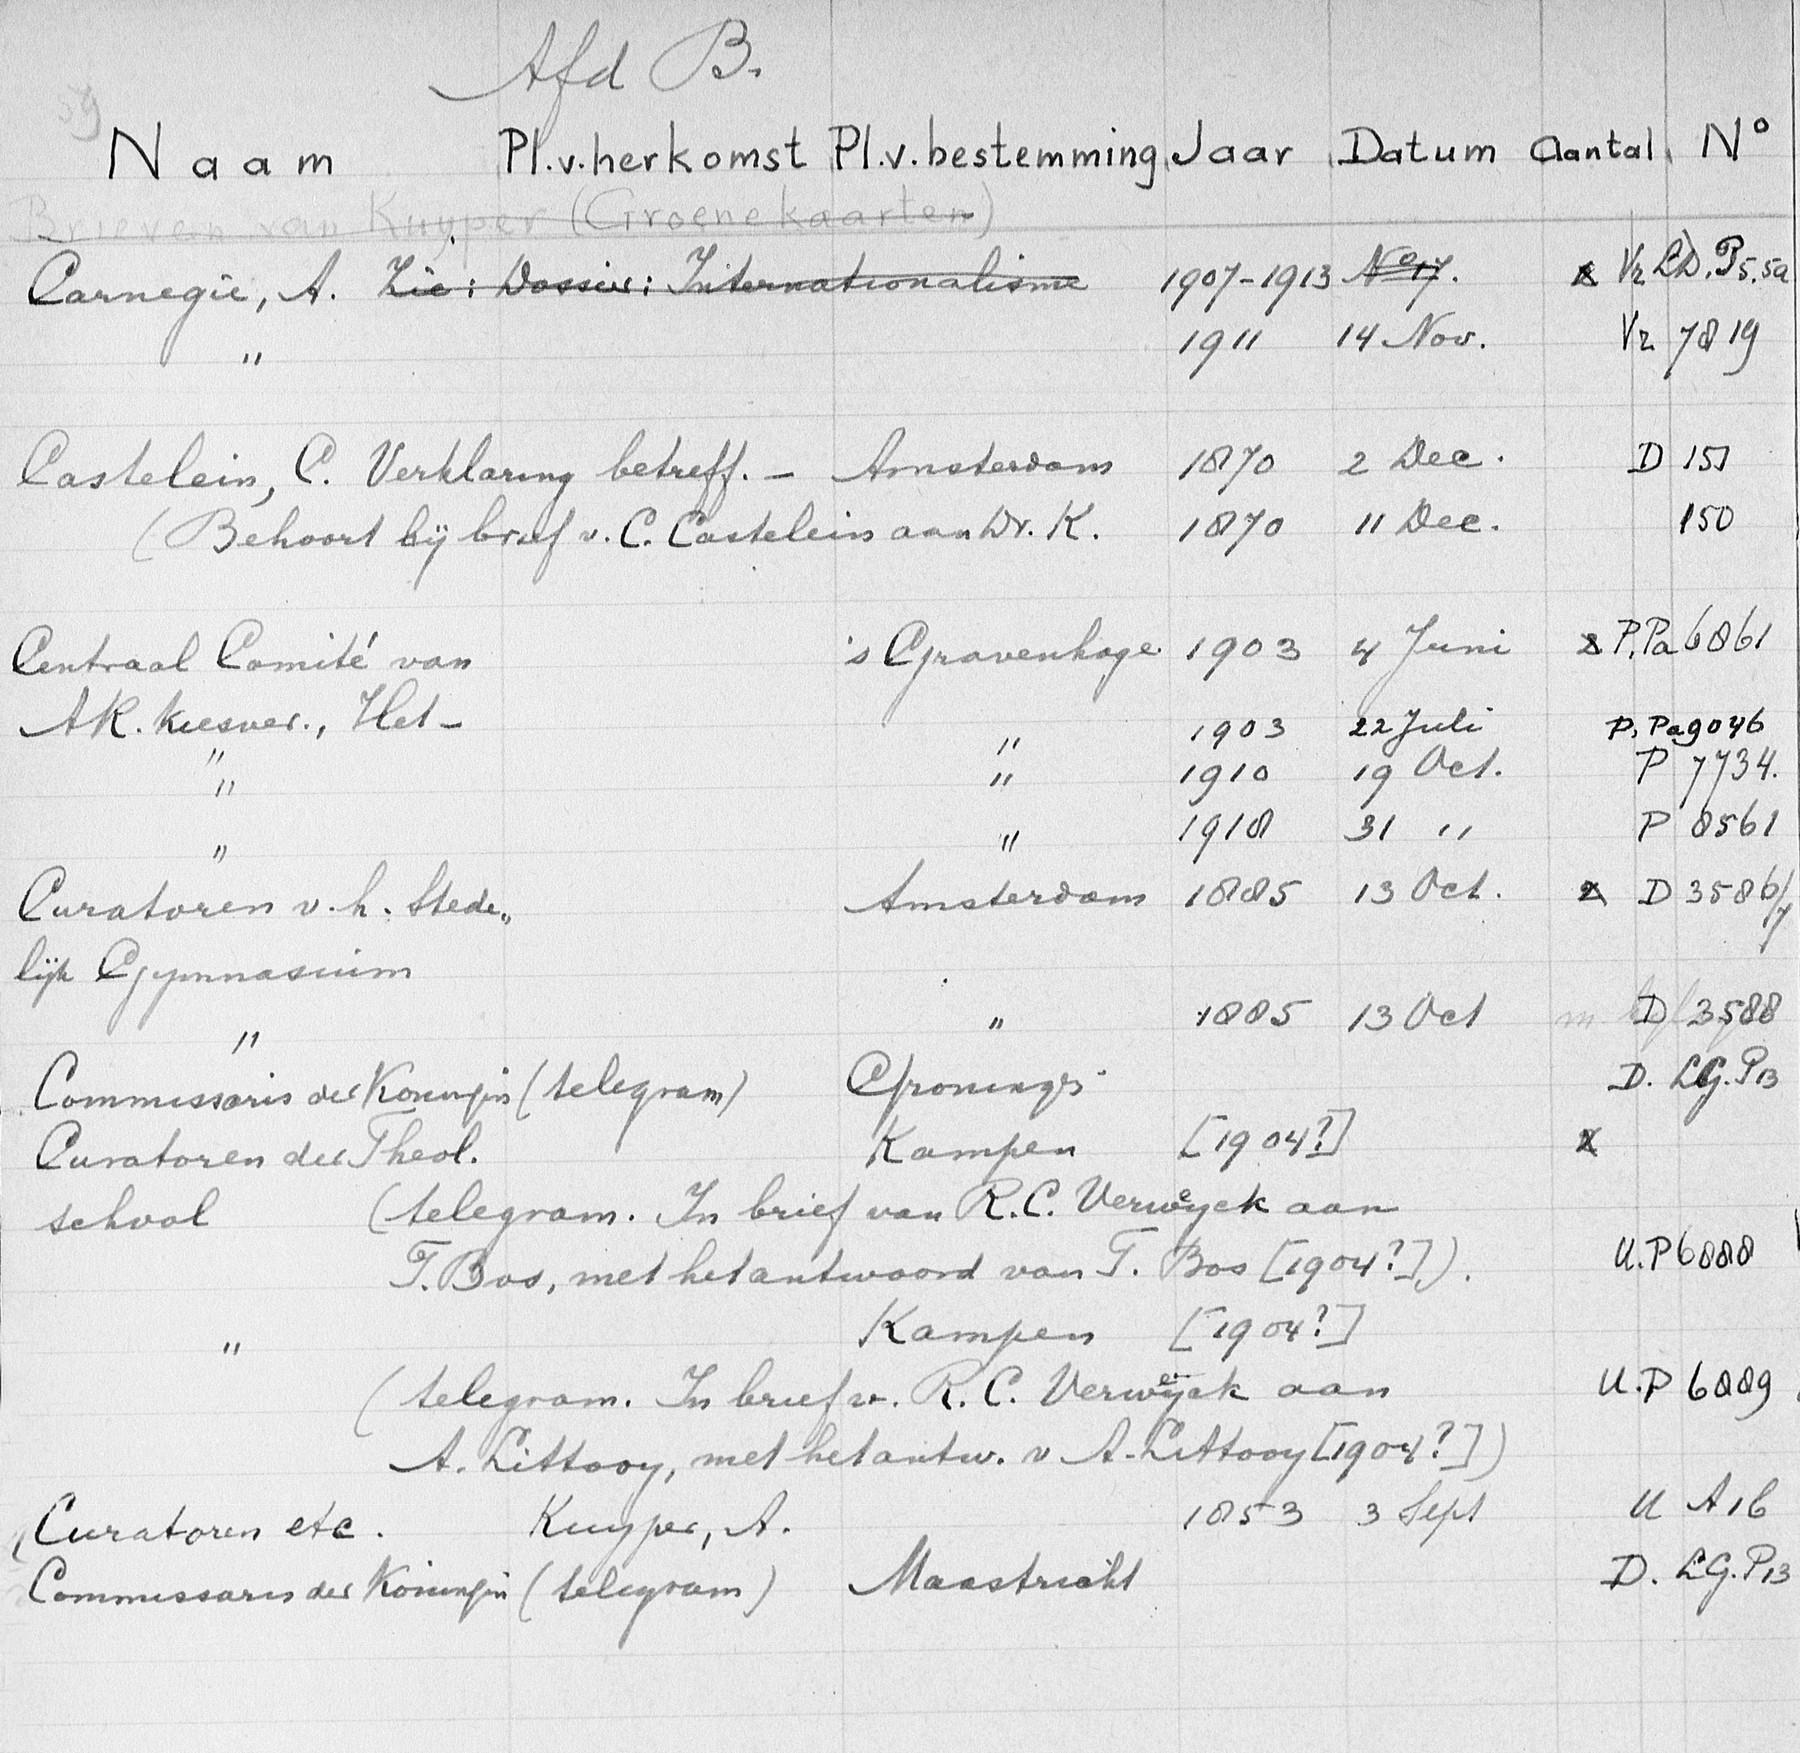 Afd B.
Naam Pl.v.herkomst Pl.v.bestemming Jaar Datum Aantal No
Brieven van Kuyper (Groene kaarten)
Carnegie, A. Zie: Dossier: Internationalisme 1907-1913 No 17. Vr LD. P5.5a
" 1911 14 Nov. Vr 7819
Castelein, C. Verklaring betreff. – Amsterdam 1870 2 Dec. D 151
(Behoort bij brief v. C. Castelein aan Dr. K. 1870 11 Dec. 150
Centraal Comité van 's Gravenhage 1903 4 Juni P.Pa 6861
AR. Kiesver., Het – " 1903 22 Juli P.Pa 9046
" " 1910 19 Oct. P 7734.
"
" " 1918 31 " P 8561
Curatoren v.h. Stede„ Amsterdam 1885 13 Oct. 2 D 3586/7
lijk Gymnasium
" " 1885 13 Oct D 3588
Commissaris der Koningin (telegram) Groningen D. LG. P13
Curatoren der Theol. Kampen [1904?]
school (telegram. In brief van R.C. Verweyck aan
T. Bos, met het antwoord van T. Bos [1904?]). U.P 6888
" Kampen [1904?]
(telegram. In brief v. R.C. Verweijck aan U.P 6889
A. Littooy, met het antw. v A. Littooy [1904?])
Curatoren etc. Kuyper, A. 1853 3 Sept U A16
Commissaris der Koningin (telegram) Maastricht D. LG. P13